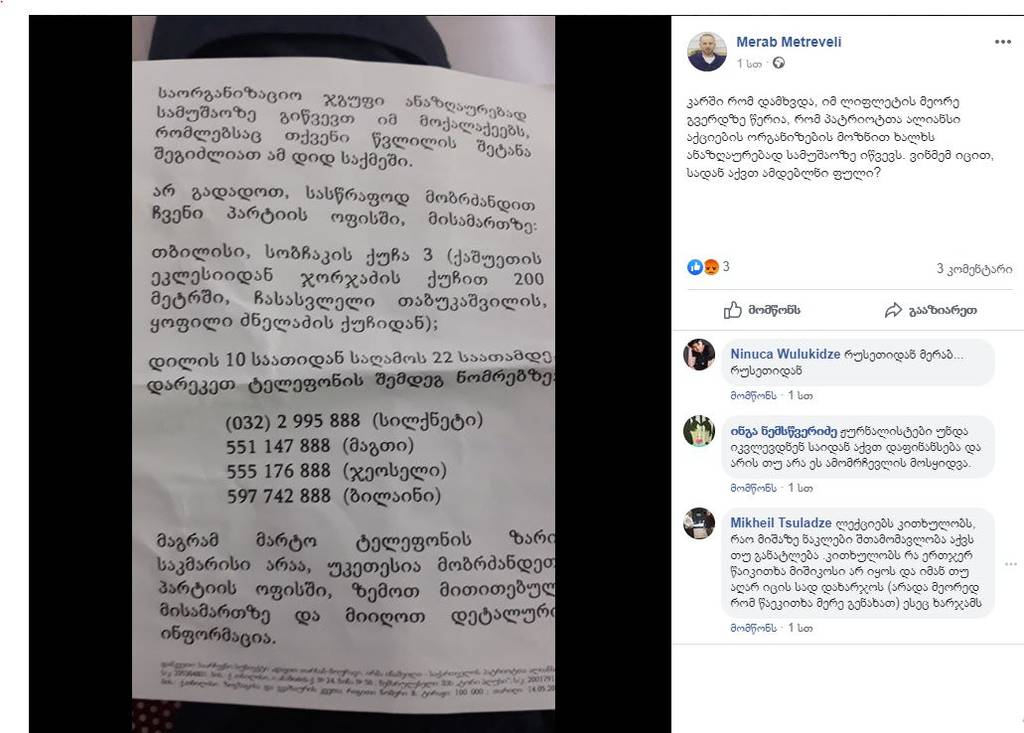 საორგანიზაციო ჯგუფი ანაზღაურებად
სამუშაოზე გიწვევთ იმ მოქალაქეებს,
რომლებსაც თქვენი წვლილის შეტანა
შეგიძლიათ ამ დიდ საქმეში.
არ გადადოთ, სასწრაფოდ მობრძანდით
ჩვენი პარტიის ოფისში, მისამართზე:
თბილისი, სობჩაკის ქუჩა 3 (ქაშუეთის
ეკლესიიდან ჯორჯაძის ქუჩით 200
მეტრში, ჩასასვლელი თაბუკაშვილის,
ყოფილი ძნელაძის ქუჩიდან);
დილის 10 საათიდან საღამოს 22 საათამდე
დარეკეთ ტელეფონის შემდეგ ნომრებზე:
(032) 2 995 888 (სილქნეტი)
551 147 888 (მაგთი)
555 176 888 (ჯეოსელი)
597 742 888 (ბილაინი)
მაგრამ მარტო ტელეფონის ზარი
საკმარისი არაა, უკეთესია მობრძანდეთ
პარტიის ოფისში, ზემოთ მითითებულ
მისამართზე და მიიღოთ დეტალური
ინფორმაცია.
Merab Metreveli
1 სთ
კარში რომ დამხვდა, იმ ლიფლეტის მეორე
გვერდზე წერია, რომ პატრიოტთა ალიანსი
აქციების ორგანიზების მოზნით ხალხს
ანაზღაურებად სამუშაოზე იწვევს. ვინმემ იცით,
სადან აქვთ ამდებლნი ფული?
3
3 კომენტარი
მომწონს
გააზიარეთ
Ninuca Wulukidze რუსეთიდან მერაბ...
რუსეთიდან
მომწონს · 1 სთ
ინგა ნემსწვერიძე ჟურნალისტები უნდა
იკვლევდნენ საიდან აქვთ დაფინანსება და
არის თუ არა ეს ამომრჩევლის მოსყიდვა.
მომწონს · 1 სთ
Mikheil Tsuladze ლექციებს კითხულობს,
რაო მიშაზე ნაკლები შთამომავლობა აქვს
თუ განატლება .კითხულობს რა ერთჯერ
წაიკითხა მიშიკოსი არ იყოს და იმან თუ
აღარ იცის სად დახარჯოს (არადა მეორედ
რომ წაეკითხა მერე გენახათ) ესეც ხარჯამს
მომწონს · 1 სთ